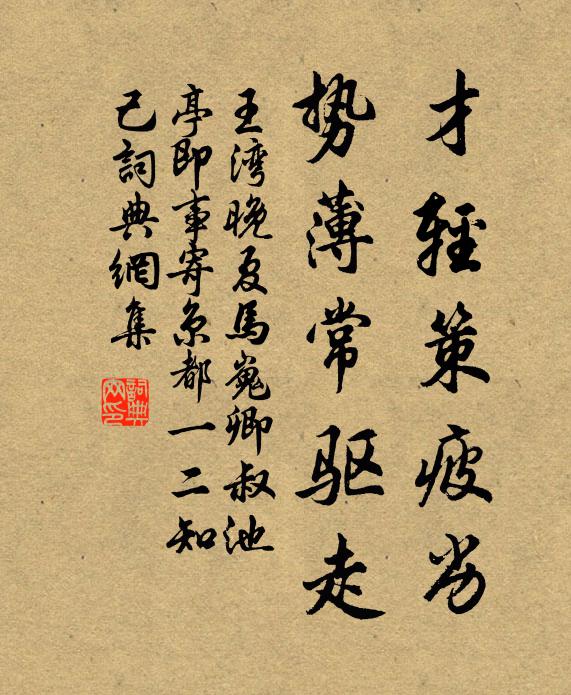 才輕策疲劣
势薄常驱走
王湾晚夏馬嵬卿叔池
亭即事寄京都一二知
己詞典網集
詞典网印